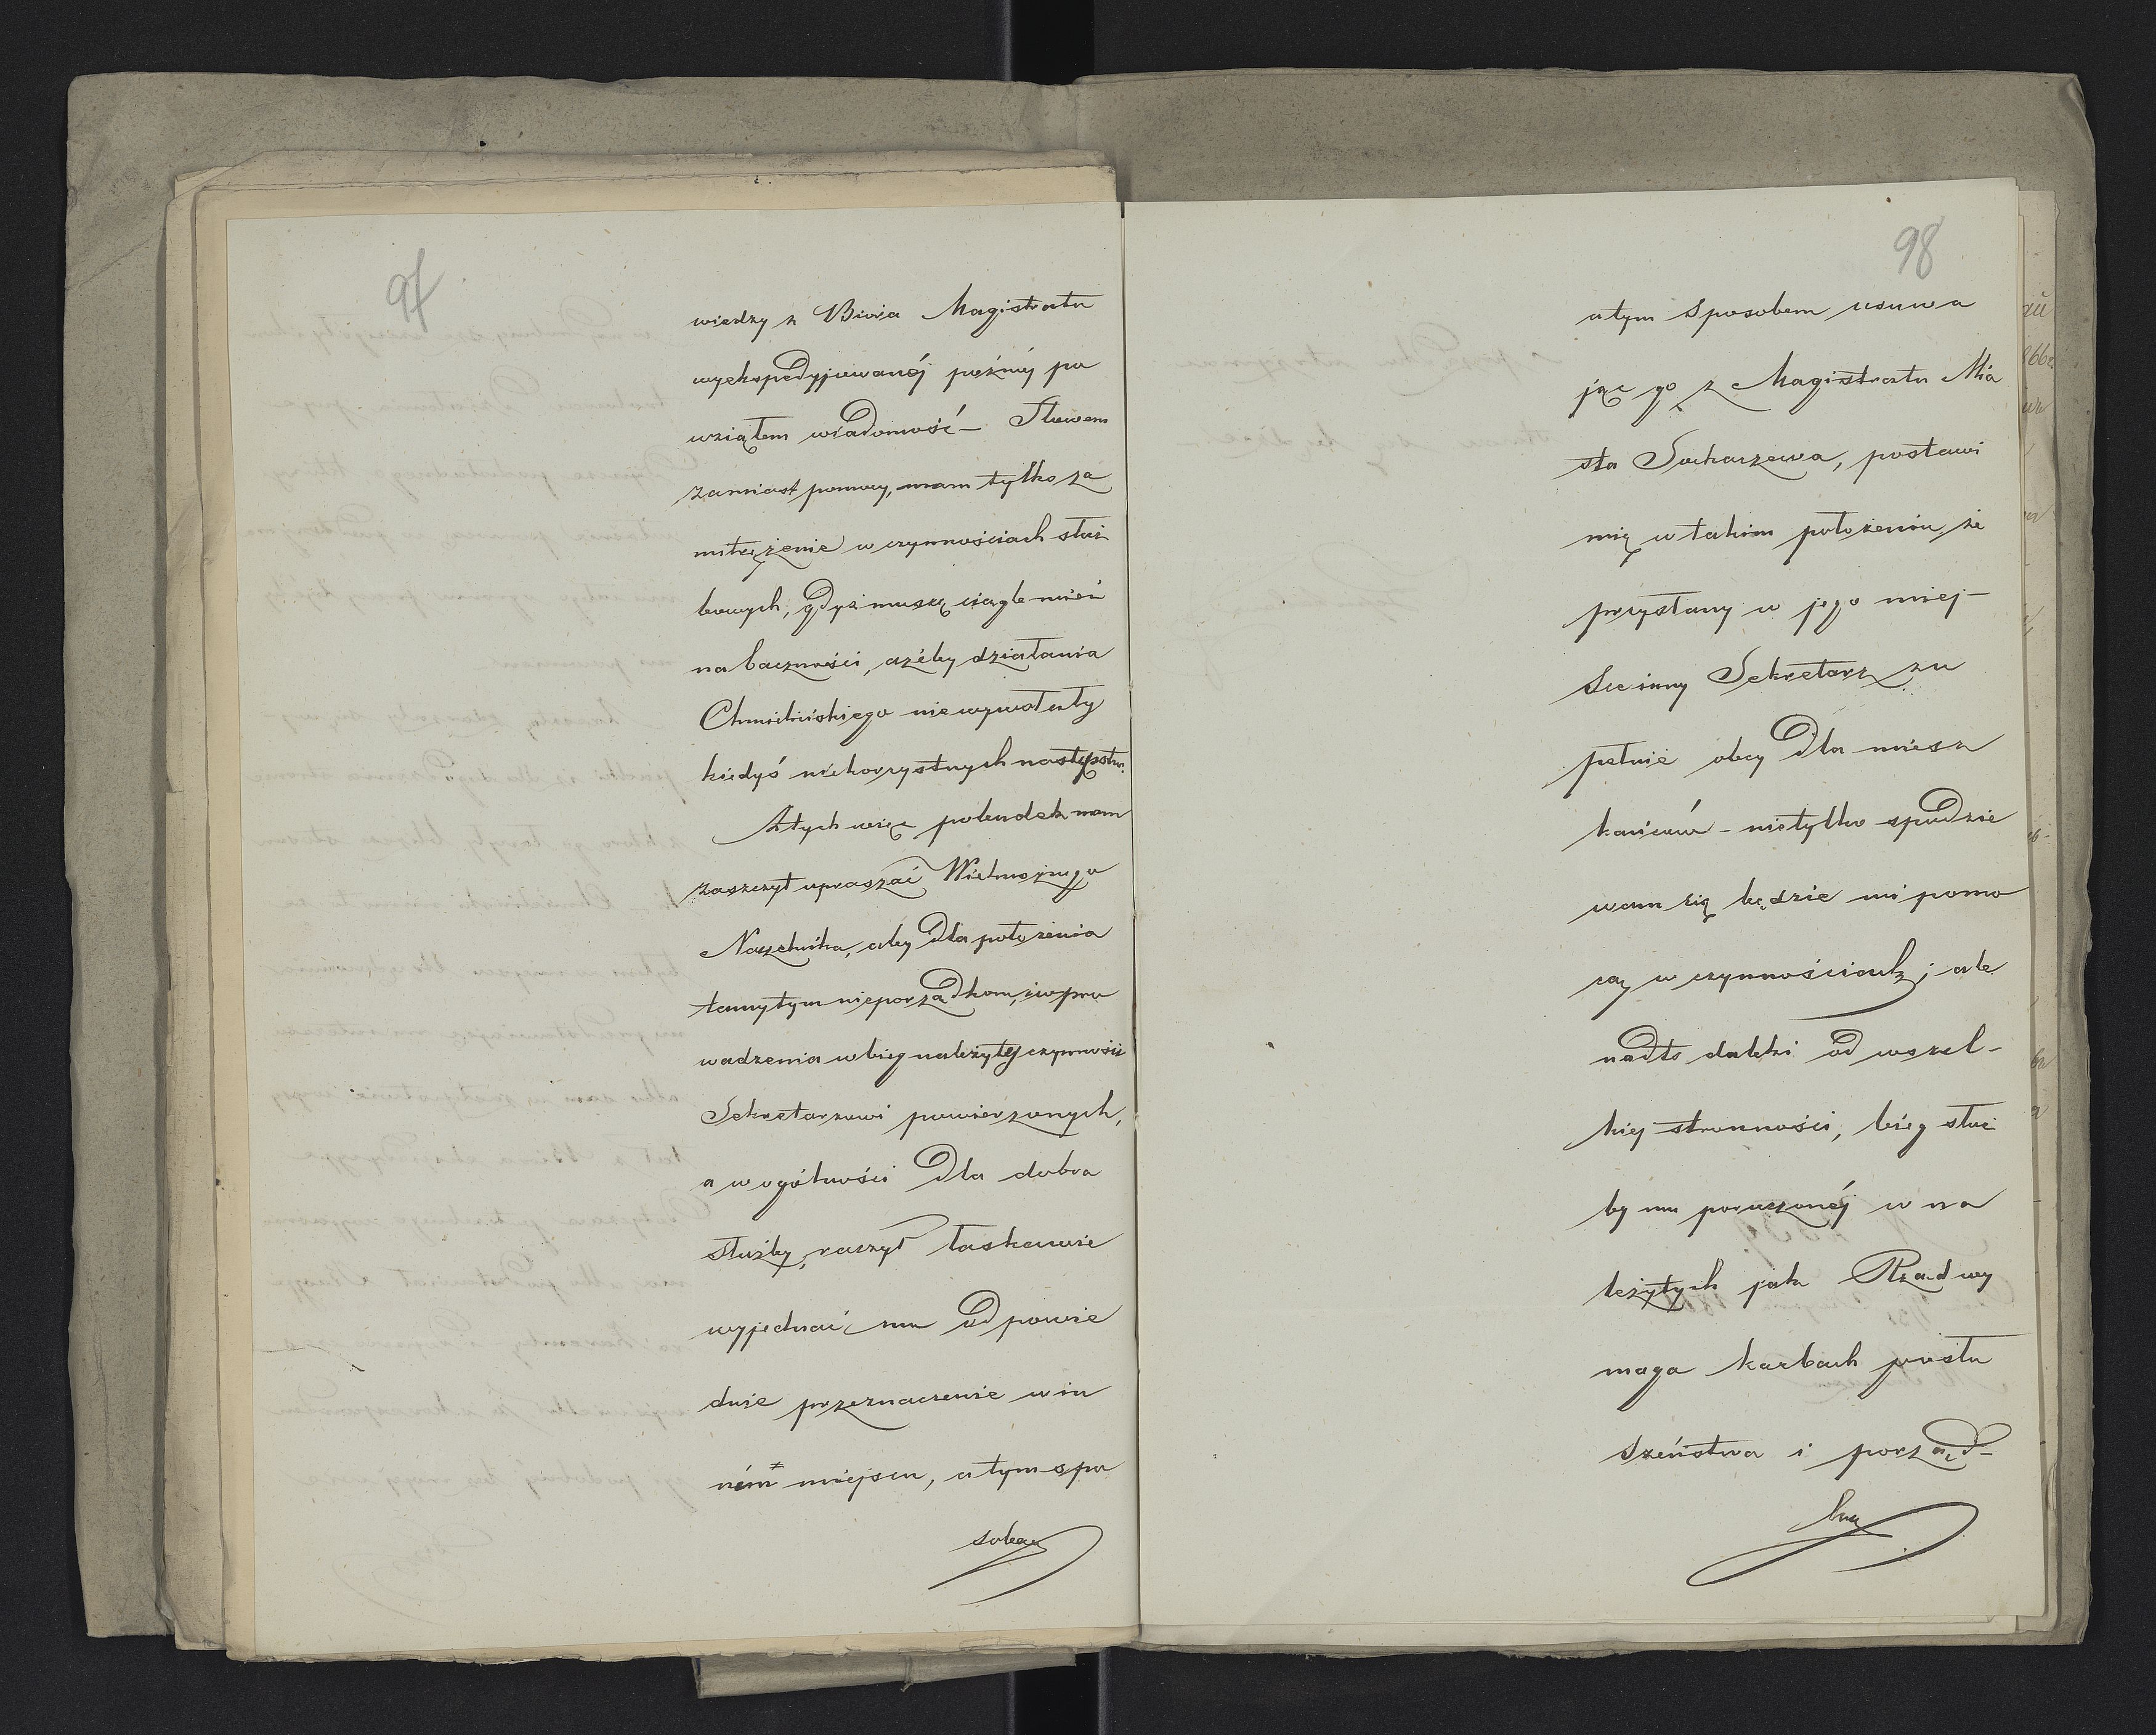 97
wiedzy z Biura Magistratu
wyekspedyjowanéj późniéj po
wziąłem wiadomość – Słowem
zamiast pomocy, mam tylko za
mitrężenie w czynnościach służ
bowych, gdyż muszę ciągle mieć
na baczności, ażeby działania
Chmieleńskiego nie wywołały
kiedyś niekorzystnych następstw.
Z tych więc pobudek mam
zaszczyt upraszać Wielmożnego
Naczelnika, aby dla położenia
tamy tym nieporządkom, i wpro
wadzenia w bieg należyty czynności
Sekretarzowi powierzonych,
a w ogólności dla dobra
służby, raczył łaskawie
wyjednać mu odpowie
dnie przeznaczenie w in
ném miejscu, a tym spo
sobem
98
a tym sposobem usuwa
jąc go z Magistratu Mia
sta Sochaczewa, postawi
mię w takim położeniu, że
przysłany w jego miej-
sce inny Sekretarz zu
pełnie obcy dla miesz
kańców – nietylko spodzie
wam się będzie mi pomo
cny w czynnościach; ale
nadto daleki od wszel-
kiej stronności, bieg służ
by mu poruczonéj w na
leżytych jak Rząd wy
maga karbach posłu
szeństwa i porząd-
ku